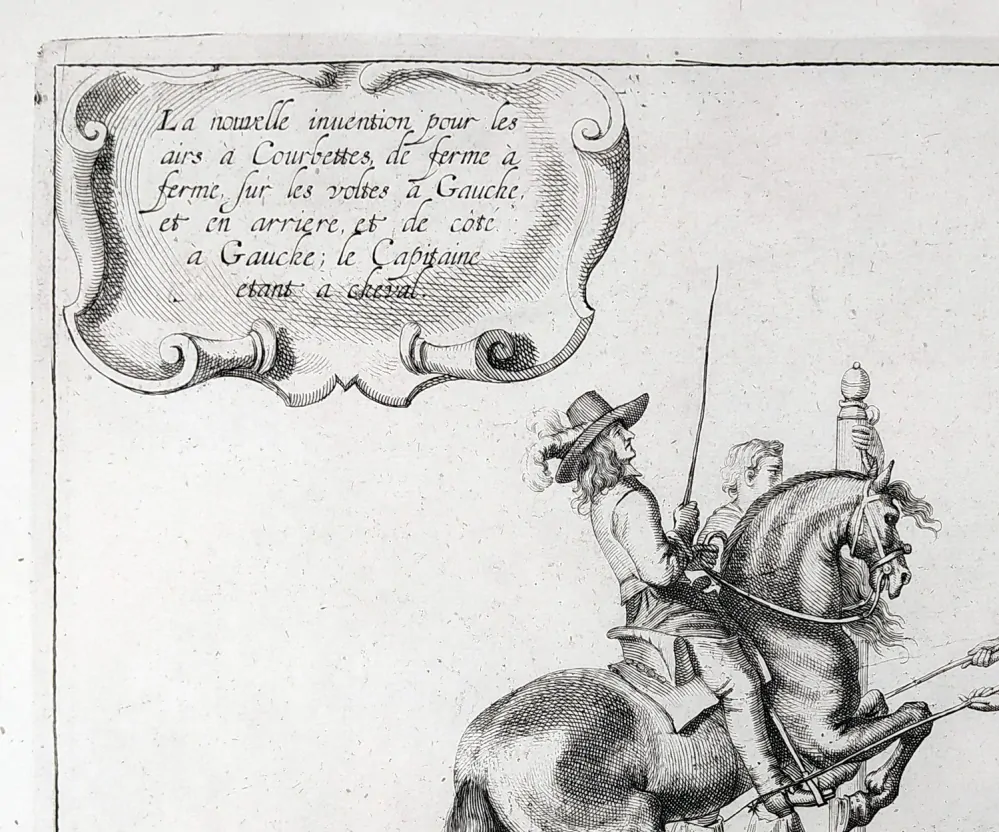 La nouvelle inuention pour les
airs à Courbettes, de ferme à
ferme, sur les voltes à Gauche,
et en arriere, et de côté
à Gauche; le Capitaine
etant a cheval.